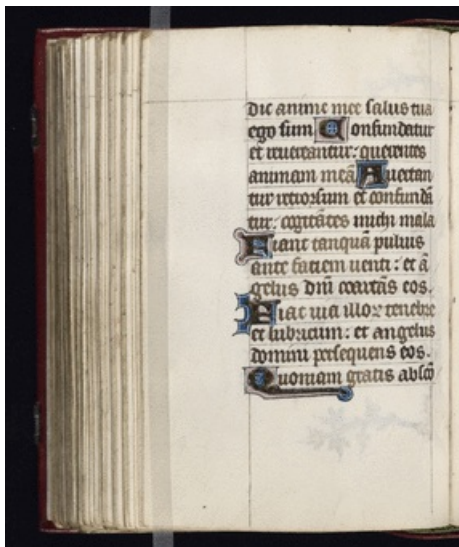 dic anime mee salus tua
ego sum Confundatur
et reuereantur: querentes
animam meā Auertan
tur retrorsum et confundā
tur: cogitātes michi mala
Fiant tanquā puluis
ante faciem uenti: et ā
gelus dn̄i coartās eos.
Fiat uia illoꝝ tenebre
et lubricum: et angelus
domini persequens eos.
Quoniam gratis abscō